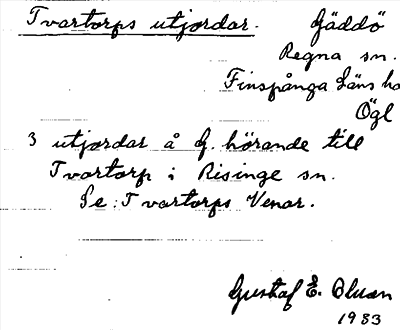 Tvartorps utjordar. Gäddö
Regna sn.
Finspånga läns ha
Ögl
3 utjordar å G. hörande till
Tvartorp i Risinge sn.
Se: Tvartorps Venar.
Gustaf E. Olsson
1983